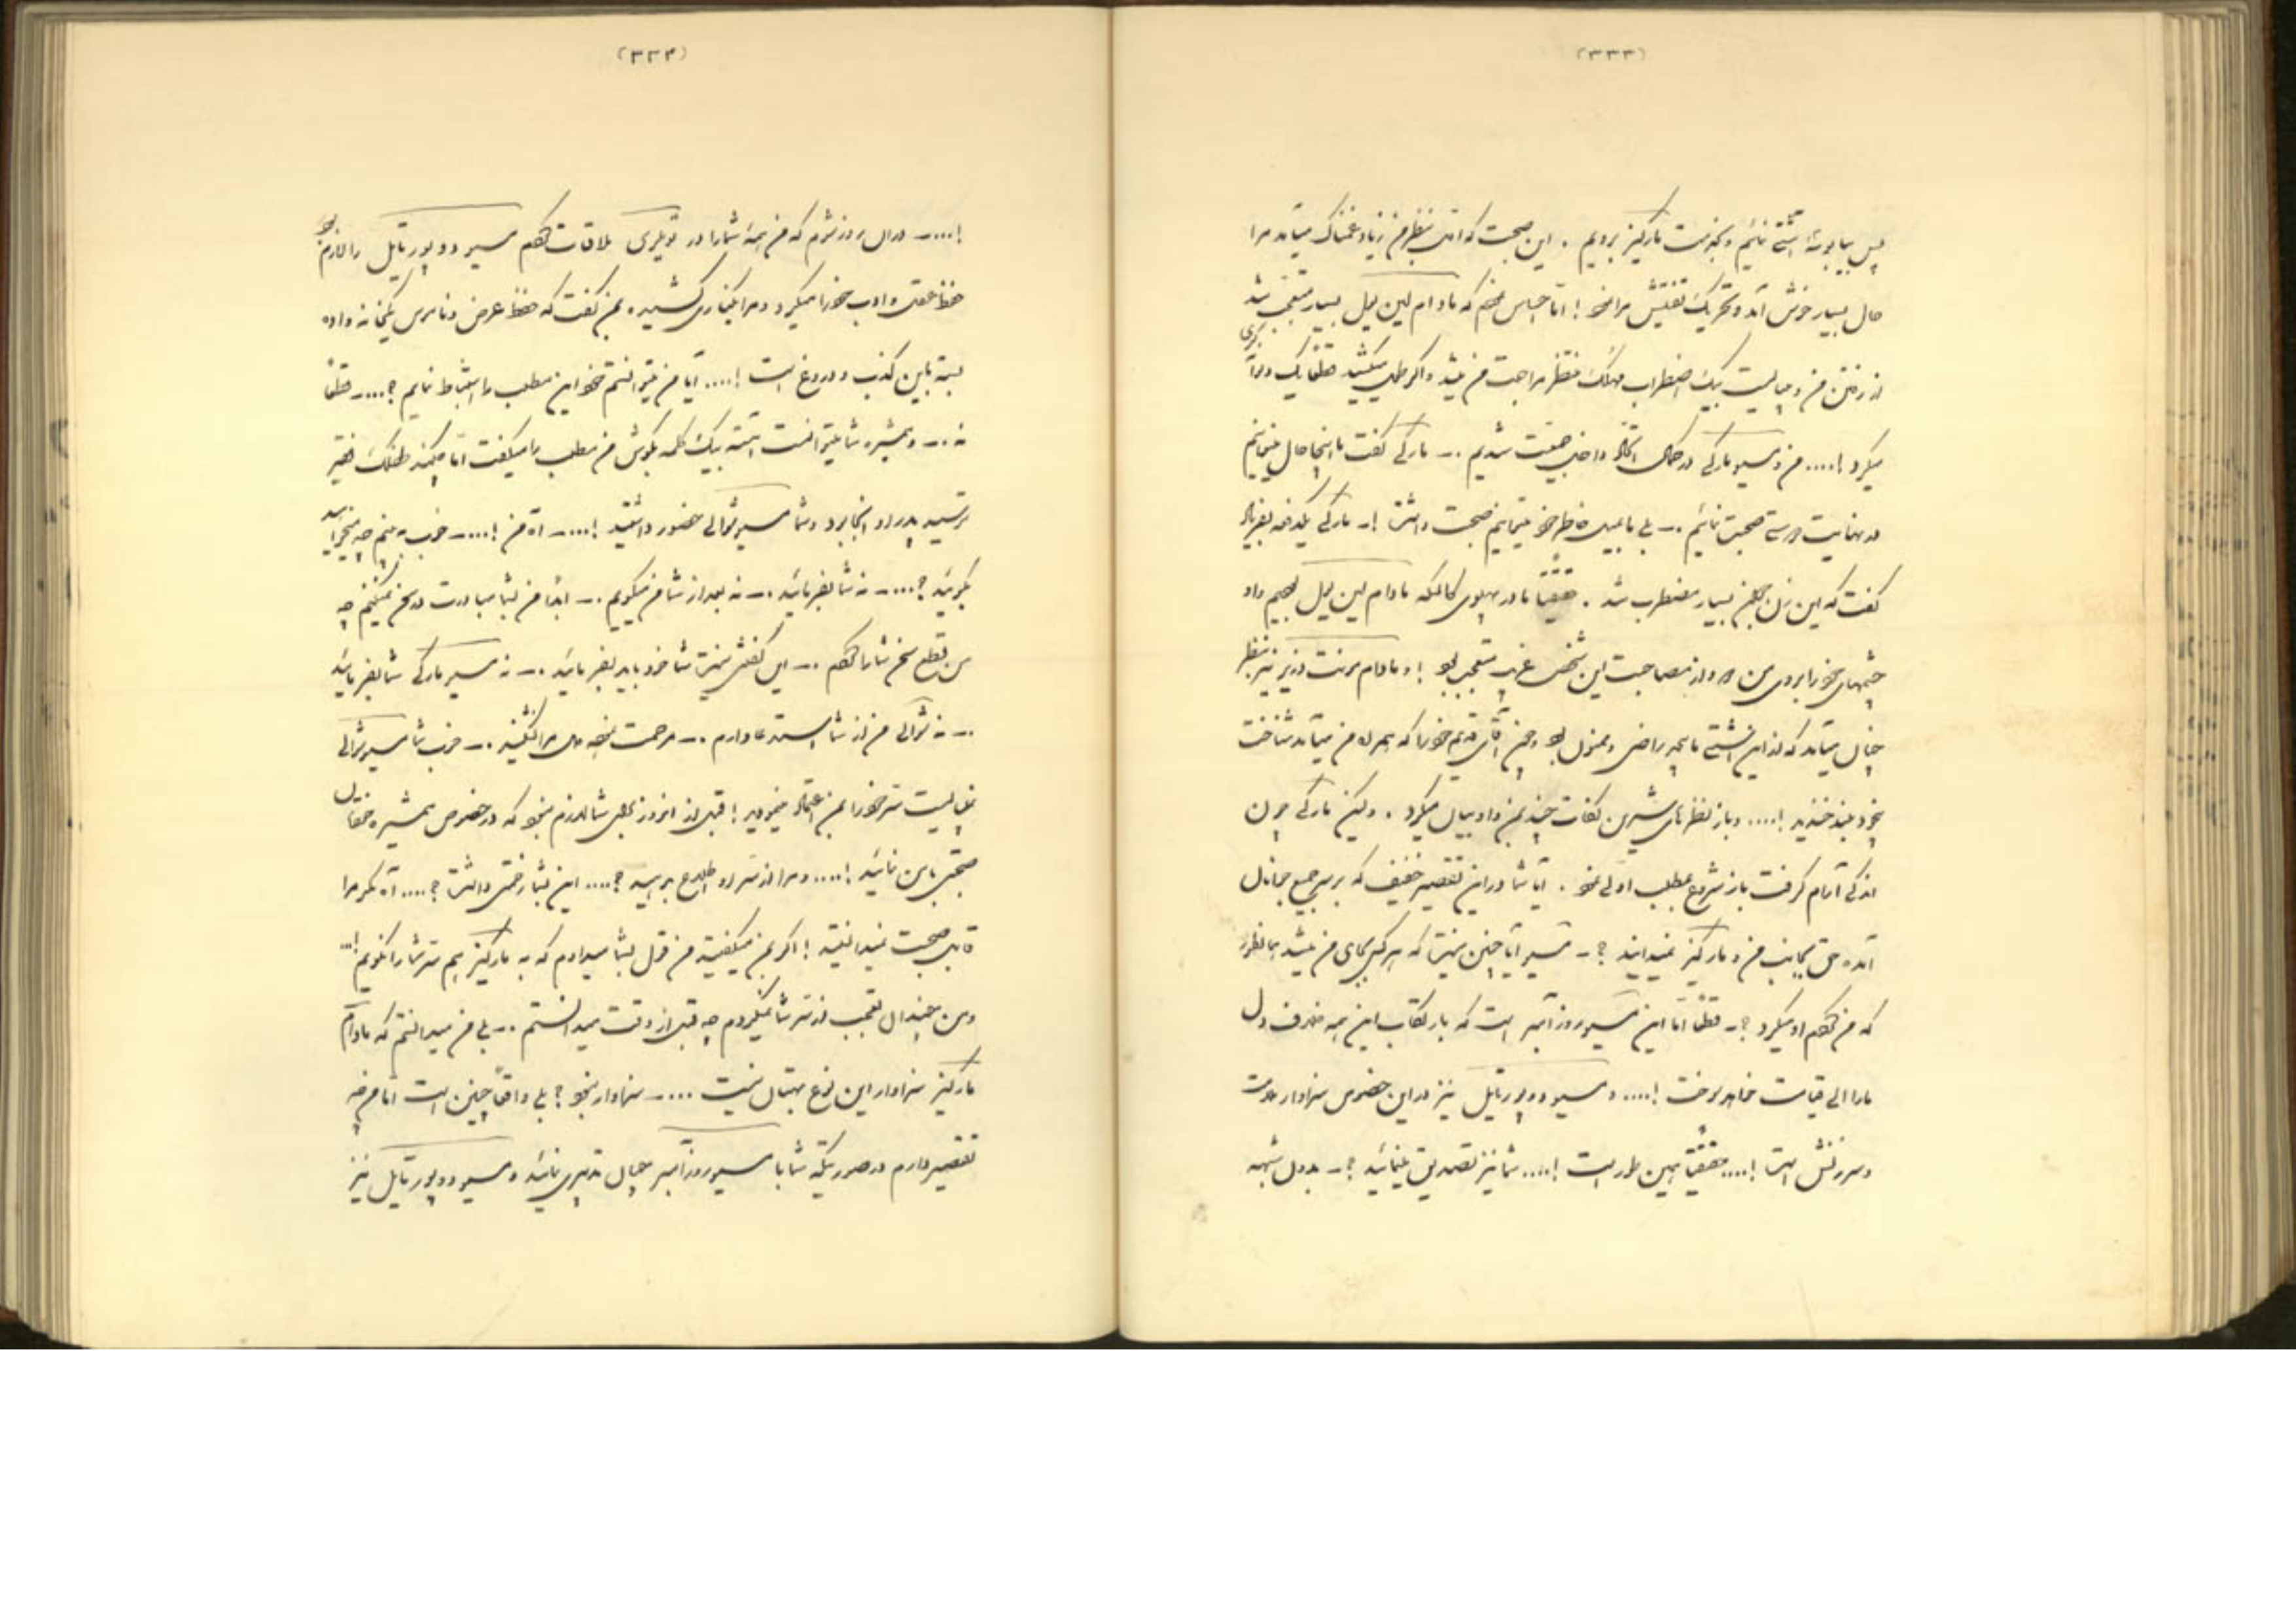 (۳۳۳)
پس بیا بوسه آشتی نمائیم و بخدمت مارکیز برویم . این صحبت که اول بنظر من زیاد غمناک میآمد مرا
حال بسیار خوش آمد و تحریک تفتیش مرا نمود ! اما احساس نمودم که مادام لین یل بسیار متعجب شد
از رفتن من و میبایست بیک اضطراب مهلک منتظر مراجعت من بشود و اگر طول میکشید
میکرد !.... من و مسیو مارکی در کمال اتحاد داخل صحبت شدیم .ـ مارکی گفت ما اینجا حال میتوانیم
در نهایت درستی صحبت نمائیم .ـ بلی ما بمیل خاطر خود میتوانیم صحبت داشت !ـ مارکی یکدفعه بفریاد
گفت که این زن بجهت من بسیار مضطرب شد . حقیقتا ما در پهلوی کالسکه مادام لین یل بهم داد
چشمهای خود را بروی من و از مصاحبت این شخص غریب متعجب بود ! و مادام برنت وزیر نیز بنظر
چنان میآمد که از این آشتی ما بیحد راضی و ممنون بود و چون آقای قدیم خود را که همراه من میآمد شناخت
بخود بخندید !.... و باز نظرهای شیرین نکات چند بمن داد بیان میکرد . ولیکن مارکی چون
اندکی آرام گرفت باز شروع بمطلب اولی نمود . آیا شما در این تقصیر خفیف که بر سر جمیع جوانان
آمده حق بجانب من و مارکیز نمیدانید ؟ـ مسیو آیا چنین نیست که هر کس بجای من میشد همانطور
که من کردم او میکرد ؟ـ قطعا اما این مسیو روزآمبر است که بارتکاب این همه حرف دل
ما را الی قیامت خواهد سوخت !.... و مسیو دو پورتایل نیز در این خصوص سزاوار ملامت
و سرزنش است !.... حقیقتا همین طور است !.... شما نیز تصدیق مینمائید ؟ـ بدون شبهه
(۳۳۴)
!....ـ در آن روز شوم که من همه شما را در تویلری ملاقات کردم مسیو دو پورتایل را لازم بود
حفظ عقل و ادب خود را میکرد و مرا بکناری کشیده بمن گفت که حفظ عرض و ناموس یکخانه واده
بسته باین کذب و دروغ است !.... آیا من میتوانستم خود این مطلب را استنباط نمایم ؟....ـ قطعا
نه .ـ و همشیره شما میتوانست آهسته بیک کلمه بگوش من مطلب را میگفت اما طفلک فقیر
ترسید پدر او آنجا بود و شما مسیو شوالی حضور داشتید !....ـ آه من !....ـ خوب منهم چه میخواهید
بگوئید ؟....ـ نه شما بفرمائید .ـ نه بعد از شما من میگویم .ـ ابدا من بشما مبادرت در سخن نمیکنم چه
من قطع سخن شما را کردم .ـ این گفتنی نیست شما خود باید بفرمائید .ـ نه مسیو مارکی شما بفرمائید
.ـ نه شوالی من از شما استدعا دارم .ـ مرحمت نموده مرا نکنید .ـ خوب شما مسیو شوالی
میبایست سر خود را بمن اعتماد مینمودید ! قبل از امروز بر شما لازم بود که در خصوص همشیره خودتان
صحبتی با من نمائید !.... و مرا از سر او اطلاع بدهید ؟.... این بشما زحمتی داشت ؟.... آه مگر مرا
قابل صحبت نمیدانستید ! اگر بمن میگفتید من قول بشما میدادم که به مارکیز هم سر شما را نگویم !...
و من چندان تعجب از سر شما نمیکردم چه قبل از وقت میدانستم .ـ بلی من میدانستم که مادام
مارکیز سزاوار این نوع بهتان نیست ....ـ سزاوار نبود ؟ بلی واقعا چنین است اما من چه
تقصیر دارم در صورتیکه شما با مسیو روزآمبر چنان تدبیری نمائید و مسیو دو پورتایل نیز